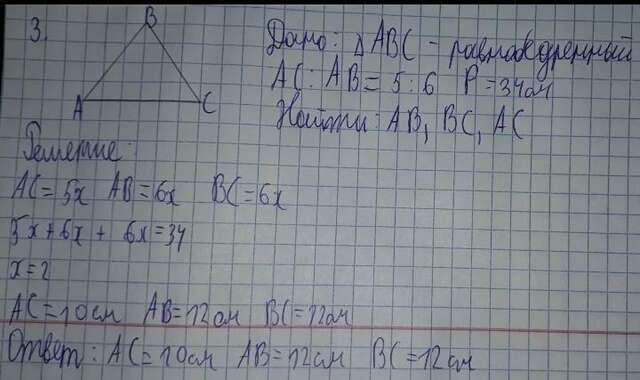 3.
B
A
C
Дано: △ABC - равнобедренный
AC : AB = 5 : 6 P = 34см
Найти: AB, BC, AC
Решение:
AC = 5x AB = 6x BC = 6x
5x + 6x + 6x = 34
x = 2
AC = 10см AB = 12см BC = 12см
Ответ: AC = 10см AB = 12см BC = 12см